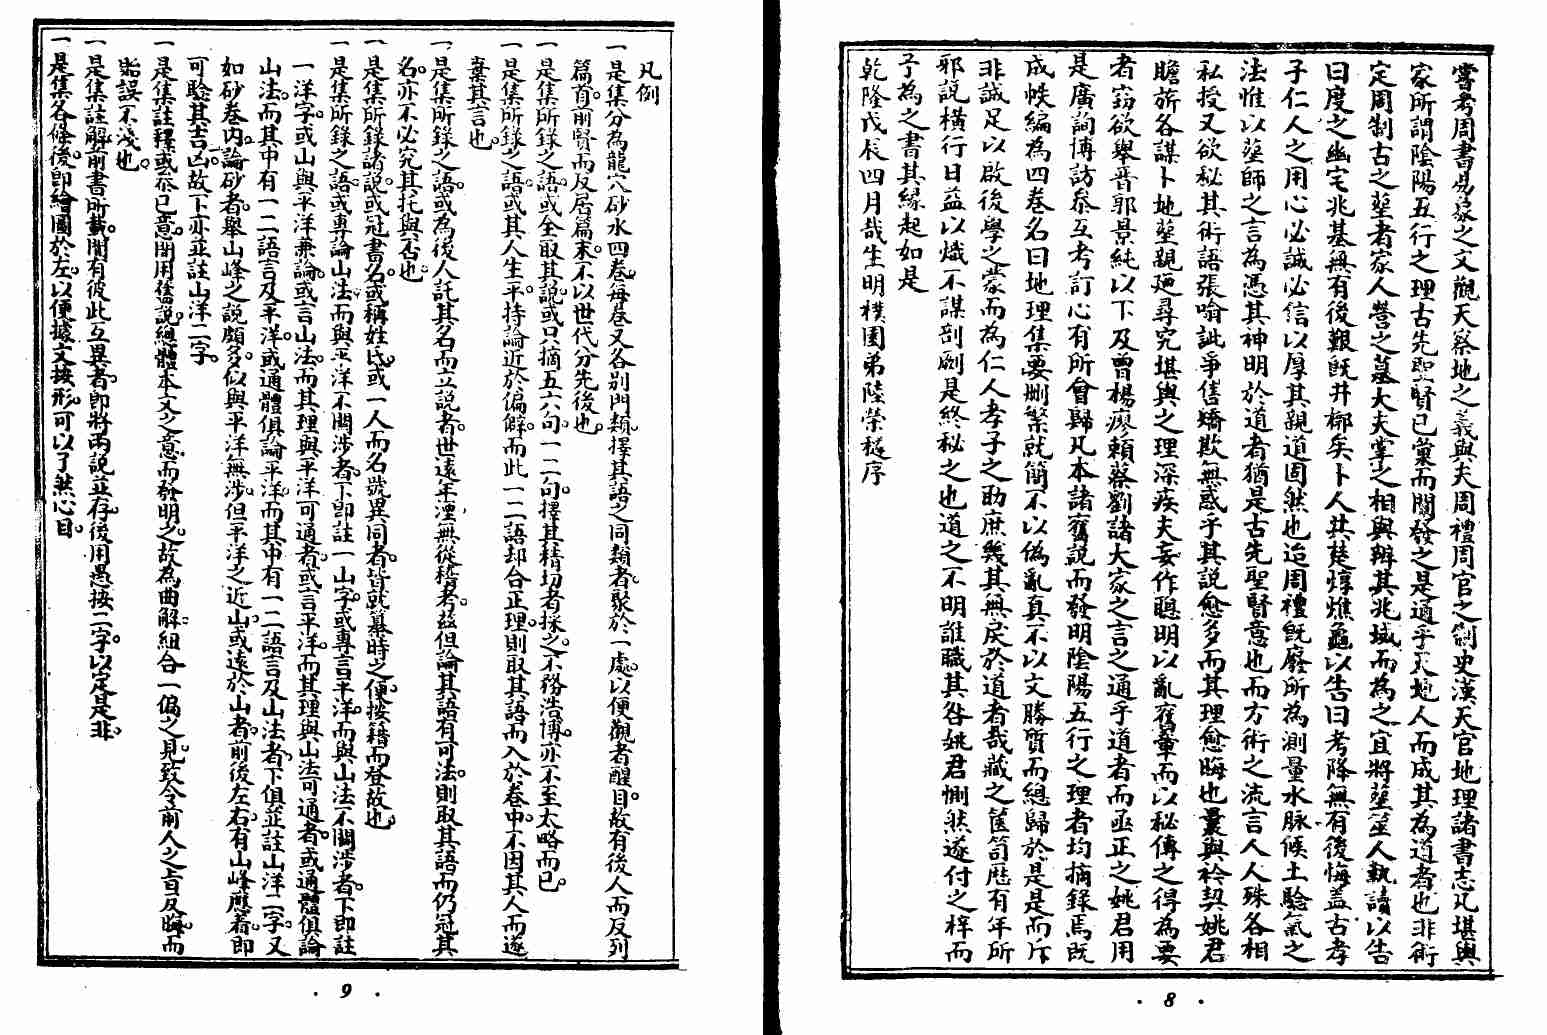 嘗考周書易象之文觀天察地之義與夫周禮周官之制史漢天官地理諸書志凡堪輿
家所謂陰陽五行之理古先聖賢已彙而闡發之是通乎天地人而成其為道者也非術
定周制古之塟者家人營之墓大夫掌之相與辨其兆域而為之宜將塟筮人執讀以告
曰度之幽宅兆基無有後艱旣井槨矣卜人共楚焞燋龜以告曰考降無有後悔盖古孝
子仁人之用心必誠必信以厚其親道固然也迨周禮旣廢所為測量水脉候土驗氣之
法惟以塟師之言為憑其神明於道者猶是古先聖賢意也而方術之流言人人殊各相
私授又欲秘其術語張喻訿爭售矯欺無惑乎其說愈多而其理愈晦也曩與衿契姚君
瞻旂各謀卜地塟親廵尋究堪輿之理深疾夫妄作聰明以亂舊章而以秘傳之得為要
者窃欲舉晋郭景純以下及曾楊廖賴蔡劉諸大家之言之通乎道者而亟正之姚君用
是廣詢博訪叅互考訂心有所會歸凡本諸舊說而發明陰陽五行之理者均摘錄焉旣
成帙編為四卷名曰地理集要删繁就簡不以偽亂真不以文勝質而總歸於是是而斤
非誠足以啟後學之蒙而為仁人孝子之助庶幾其無戾於道者哉藏之篋笥歴有年所
邪說橫行日益以熾不謀剖劂是終秘之也道之不明誰職其咎姚君惻然遂付之梓而
予為之書其縁起如是
乾隆戊辰四月哉生明樸園弟陸榮𥠖序
· 8 ·
凡例
一是集分為龍穴砂水四卷每卷又各别門類擇其語之同類者聚於一處以便觀者醒目故有後人而反列
篇首前賢而反居篇末不以世代分先後也
一是集所錄之語或全取其說或只摘五六句一二句擇其精切者採之不務浩博亦不至太略而已
一是集所錄之語或其人生平持論近於偏僻而此一二語却合正理則取其語而入於卷中不因其人而遂
棄其言也
一是集所錄之語或為後人託其名而立說者世遠年湮無從稽考茲但論其語有可法則取其語而仍冠其
名亦不必究其托與否也
一是集所錄諸說或冠書名或稱姓氏或一人而名號異同者皆就纂時之便按籍而登故也
一是集所錄之語或專論山法而與平洋不關涉者下即註一山字或專言平洋而與山法不關涉者下即註
一洋字或山與平洋兼論或言山法而其理與平洋可通者或言平洋而其理與山法可通者或通體俱論
山法而其中有一二語言及平洋或通體俱論平洋而其中有一二語言及山法者下俱並註山洋二字又
如砂卷内論砂者舉山峰之說頗多似與平洋無涉但平洋之近山或遠於山者前後左右有山峰應者即
可驗其吉凶故下亦並註山洋二字
一是集註釋或叅已意間用舊說總體本文之意而發明之故為曲解組合一偏之見致令前人之旨反晦而
貽誤不淺也
一是集註解前書所載間有彼此互異者即將兩說並存後用愚按二字以定是非
一是集各條後即繪圖於左以便據文按形可以了然心目
· 9 ·